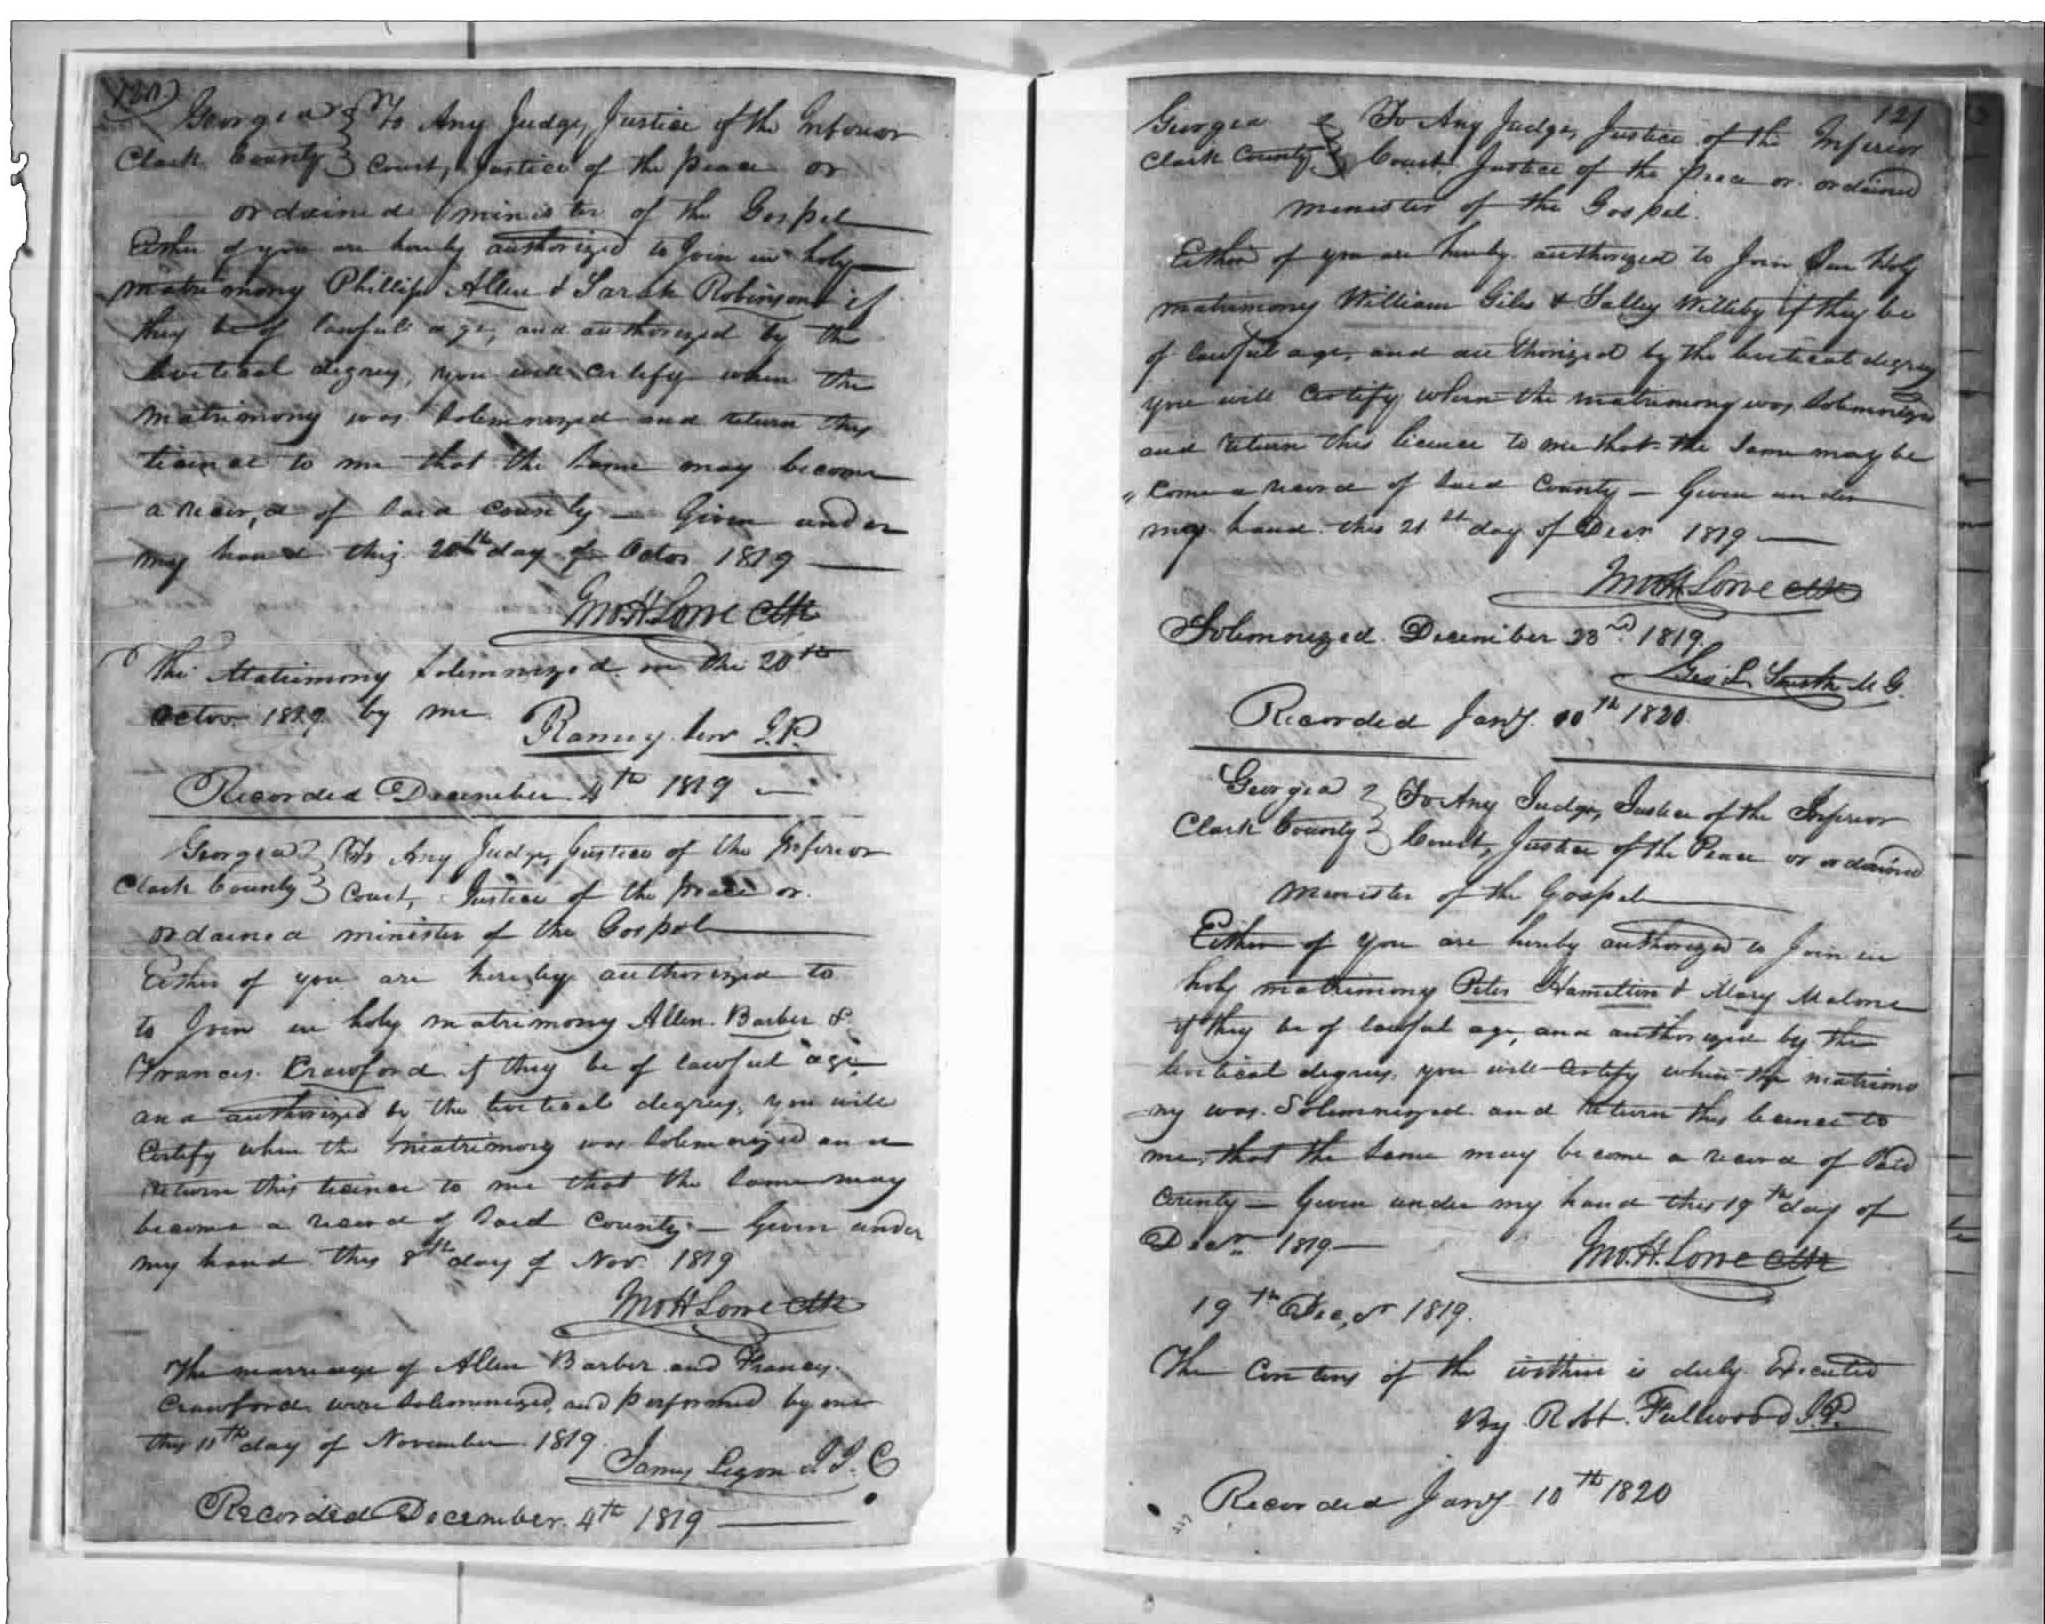 120
Georgia } To Any Judge, Justice of the Inferior
Clark County } Court, Justice of the peace or
ordained minister of the Gospel
Either of you are hereby authorized to Join in holy
matrimony Phillip Allen & Sarah Robinson if
they be of lawful age, and authorized by the
leviticul degrey, you will certify when the
matrimony was Solemnized and return this
licence to me that the Same may become
a record of Said County — Given under
my hand this 20th day of Octor 1819
Jno. H. Lowe Clk
The Matrimony Solemnized on the 20th
Octor 1819 by me
J.P.
Recorded December 4th 1819
Georgia } To Any Judge, Justice of the Inferior
Clark County } Court, Justice of the peace or
ordained minister of the Gospel
Either of you are hereby authorized to
to Join in holy matrimony Allen Barber &
Frances Crawford if they be of lawful age,
and authorized by the levitical degrey, you will
Certify when the matrimony was Solemnized and
return this licence to me that the Same may
become a record of Said County — Given under
my hand this 8th day of Nov. 1819
Jno H Lowe Clk
The marriage of Allen Barber and Francy
Crawford were Solemnized, and performed by me
this 11th day of November 1819.
James Ligon J.I.C
Recorded December 4th 1819
121
Georgia } To Any Judge, Justice of the Inferior
Clark County } Court Justice of the peace or ordained
minister of the Gospel.
Either of you are hereby authorized to Join in Holy
matrimony William Giles & Salley Willeby if they be
of lawful age, and authorized by the levitical degrey
you will Certify when the matrimony was Solemnized
and return this licence to me that the Same may be
" come a record of Said County — Given under
my hand this 21st day of Decr 1819
Jno H Lowe Clk
Solemnized December 23rd 1819.
Geo. L. Smith M G.
Recorded Jany. 10th 1820.
Georgia } To Any Judge, Justice of the Inferior
Clark County } Court, Justice of the Peace or ordained
Minister of the Gospel
Either of you are hereby authorized to Join in
holy matrimony Peter Hamilton & Mary Malone
if they be of lawful age, and authorized by the
levitical degrey, you will Certify when the matrimo
ny was Solemnized and return this licence to
me, that the Same may become a record of Said
County — Given under my hand this 19th day of
Decr 1819 —
Jno. H. Lowe Clk
19th Decr 1819.
The Contens of the within is duly Executed
By Robt. Fullwood J.P.
Recorded Jany 10th 1820